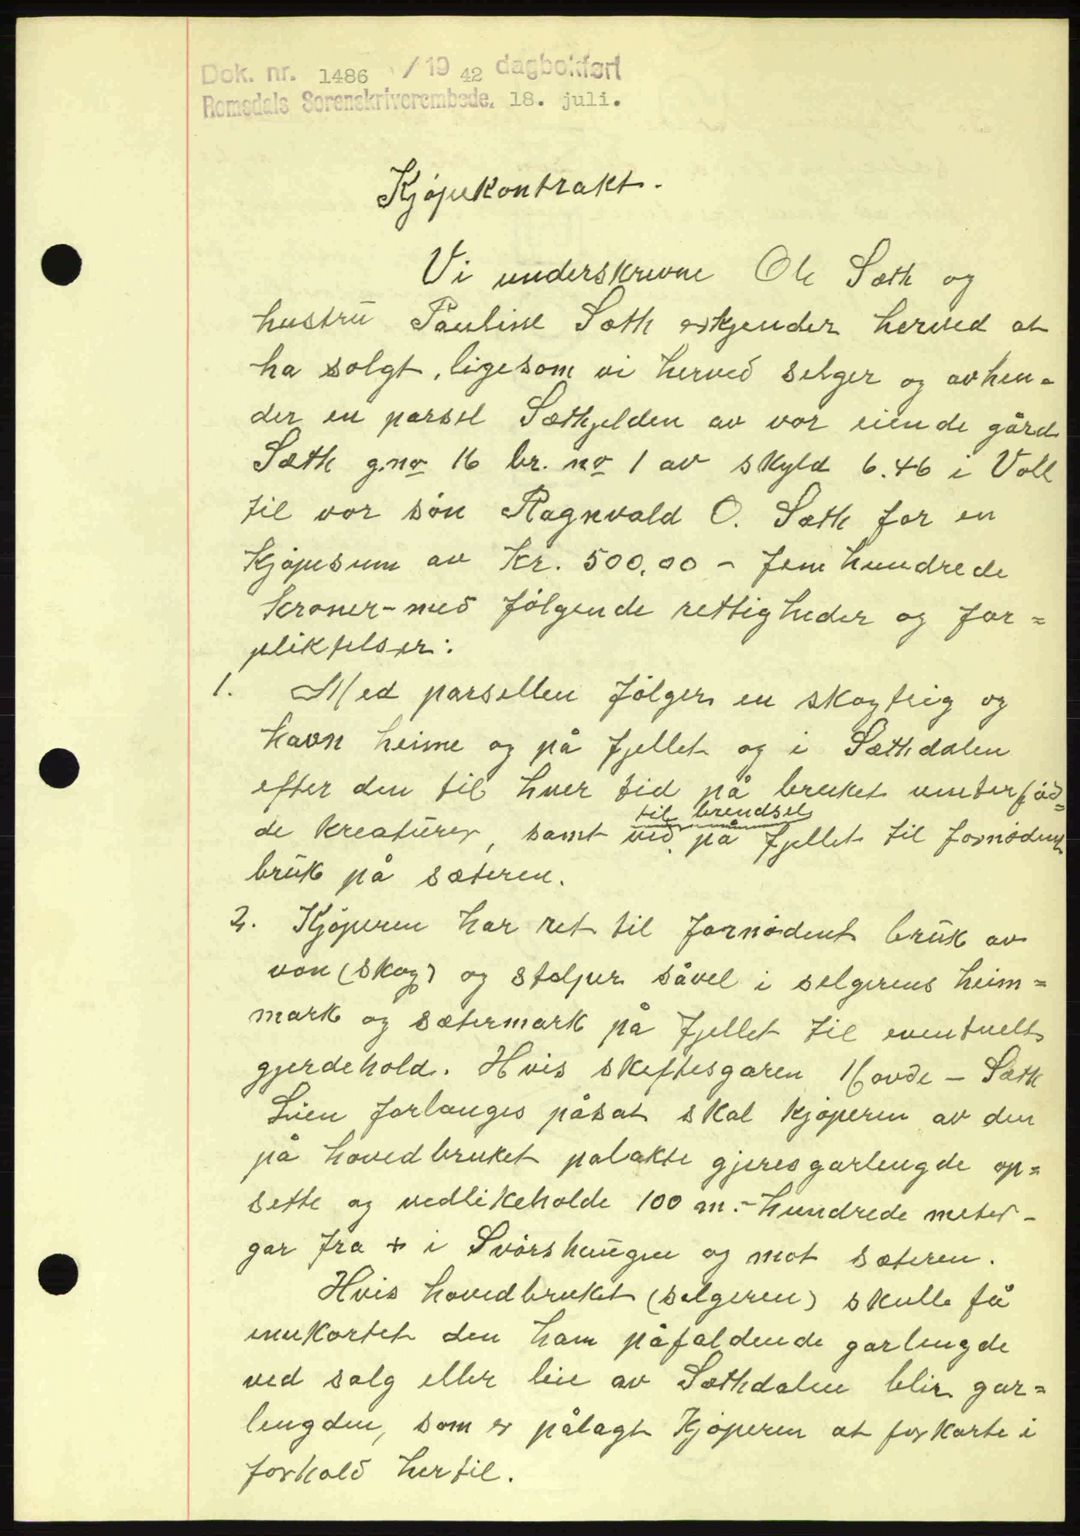 Dok. nr. 1486 / 19 42 dagbokført
Romsdals Sorenskriverembede. 18. juli.
Kjøpekontrakt.
Vi underskrevne Ole Sæth og
hustru Pauline Sæth erkjender herved at
ha solgt, ligesom vi herved selger og avhen-
der en parsel Sæthjelden av vor eiende gård
Sæth g.no 16 br. no 1 av skyld 6.46 i Voll
til vor søn Ragnvald O. Sæth for en
kjøpesum av kr. 500,00 - fem hundrede
kroner - med følgende rettigheder og for=
pliktelser:
1. Med parsellen følger en skogteig og
havn heime og på fjellet og i Sæthdalen
efter den til hver tid på bruket vinterfød=
de kreaturer, samt ved til brendsel på fjellet til fornødent
bruk på sæteren.
2. Kjøperen har ret til fornødent bruk av
von (skog) og stolper såvel i selgerens heim=
mark og sætermark på fjellet til eventuelt
gjerdehold. Hvis skiftesgaren Hovde - Sæth
Lien forlanges påsat skal kjøperen av den
på hovedbruket palakte gjeresgarlengde op=
sette og vedlikeholde 100 m. - hundrede meter -
gar fra + i Svørshaugen og mot sæteren.
Hvis hovedbruket (selgeren) skulle få
innkortet den ham påfaldende garlengde
ved salg eller leie av Sæthdalen blir gar=
lengden, som er pålagt kjøperen at forkorte i
forhold hertil.